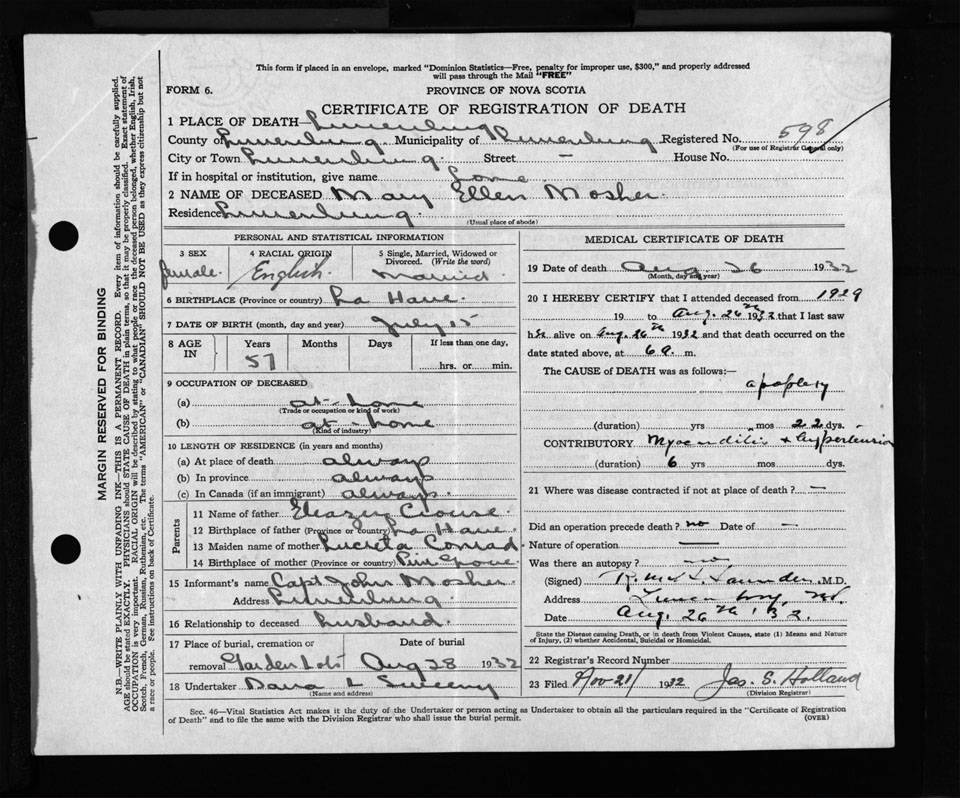 This form if placed in an envelope, marked "Dominion Statistics—Free, penalty for improper use, $300," and properly addressed
will pass through the Mail "FREE"
FORM 6.
PROVINCE OF NOVA SCOTIA
CERTIFICATE OF REGISTRATION OF DEATH
1 PLACE OF DEATH— Lunenburg
County of Lunenburg. Municipality of Lunenburg Registered No. 598
(For use of Registrar General only)
City or Town Lunenburg. Street — House No.
If in hospital or institution, give name home
2 NAME OF DECEASED Mary Ellen Mosher.
Residence Lunenburg.
(Usual place of abode)
PERSONAL AND STATISTICAL INFORMATION
3 SEX 4 RACIAL ORIGIN 5 Single, Married, Widowed or
Divorced. (Write the word)
female. English. Married.
6 BIRTHPLACE (Province or country) La Have.
7 DATE OF BIRTH (month, day and year) July 15
8 AGE IN Years Months Days If less than one day,
57 hrs. or min.
9 OCCUPATION OF DECEASED
(a) at-home
(Trade or occupation or kind of work)
(b) at-home
(Kind of industry)
10 LENGTH OF RESIDENCE (in years and months)
(a) At place of death always
(b) In province always
(c) In Canada (if an immigrant) always.
Parents
11 Name of father Eleazer Crouse
12 Birthplace of father (Province or country) La Have.
13 Maiden name of mother Lucreta Conrad.
14 Birthplace of mother (Province or country) Pine Grove
15 Informant's name Capt John Mosher
Address Lunenburg
16 Relationship to deceased husband.
17 Place of burial, cremation or Date of burial
removal Garden Lots Aug 28 1932
18 Undertaker Dana L Sweeny
(Name and address)
MEDICAL CERTIFICATE OF DEATH
19 Date of death Aug. 26 1932
(Month, day and year)
20 I HEREBY CERTIFY that I attended deceased from 1929
19 to Aug. 26th 1932 that I last saw
her alive on Aug. 26th 1932 and that death occurred on the
date stated above, at 6 a. m.
The CAUSE of DEATH was as follows:—
apoplexy
(duration) yrs mos 22 dys.
CONTRIBUTORY Myocarditis & hypertension
(duration) 6 yrs mos dys.
21 Where was disease contracted if not at place of death? —
Did an operation precede death? no Date of —
Nature of operation —
Was there an autopsy? no
(Signed) Saunders M.D.
Address Lunenburg, N.S.
Date Aug. 26th '32.
State the Disease causing Death, or in death from Violent Causes, state (1) Means and Nature
of Injury, (2) whether Accidental, Suicidal or Homicidal.
22 Registrar's Record Number
23 Filed Nov 21/ 1932 Jas. S. Holland
(Division Registrar)
Sec. 46—Vital Statistics Act makes it the duty of the Undertaker or person acting as Undertaker to obtain all the particulars required in the "Certificate of Registration
of Death" and to file the same with the Division Registrar who shall issue the burial permit. (OVER)
MARGIN RESERVED FOR BINDING
N.B.—WRITE PLAINLY WITH UNFADING INK—THIS IS A PERMANENT RECORD. Every item of information should be carefully supplied.
AGE should be stated EXACTLY. PHYSICIANS should STATE CAUSE OF DEATH in plain terms, so that it may be properly classified. Exact statement of
OCCUPATION is very important. RACIAL ORIGIN will be described by stating to what people or race the deceased person belonged, whether English, Irish,
Scotch, French, German, Russian, Ruthenian, etc. The terms "AMERICAN" or "CANADIAN" SHOULD NOT BE USED as they express citizenship but not
a race or people. See instructions on back of Certificate.